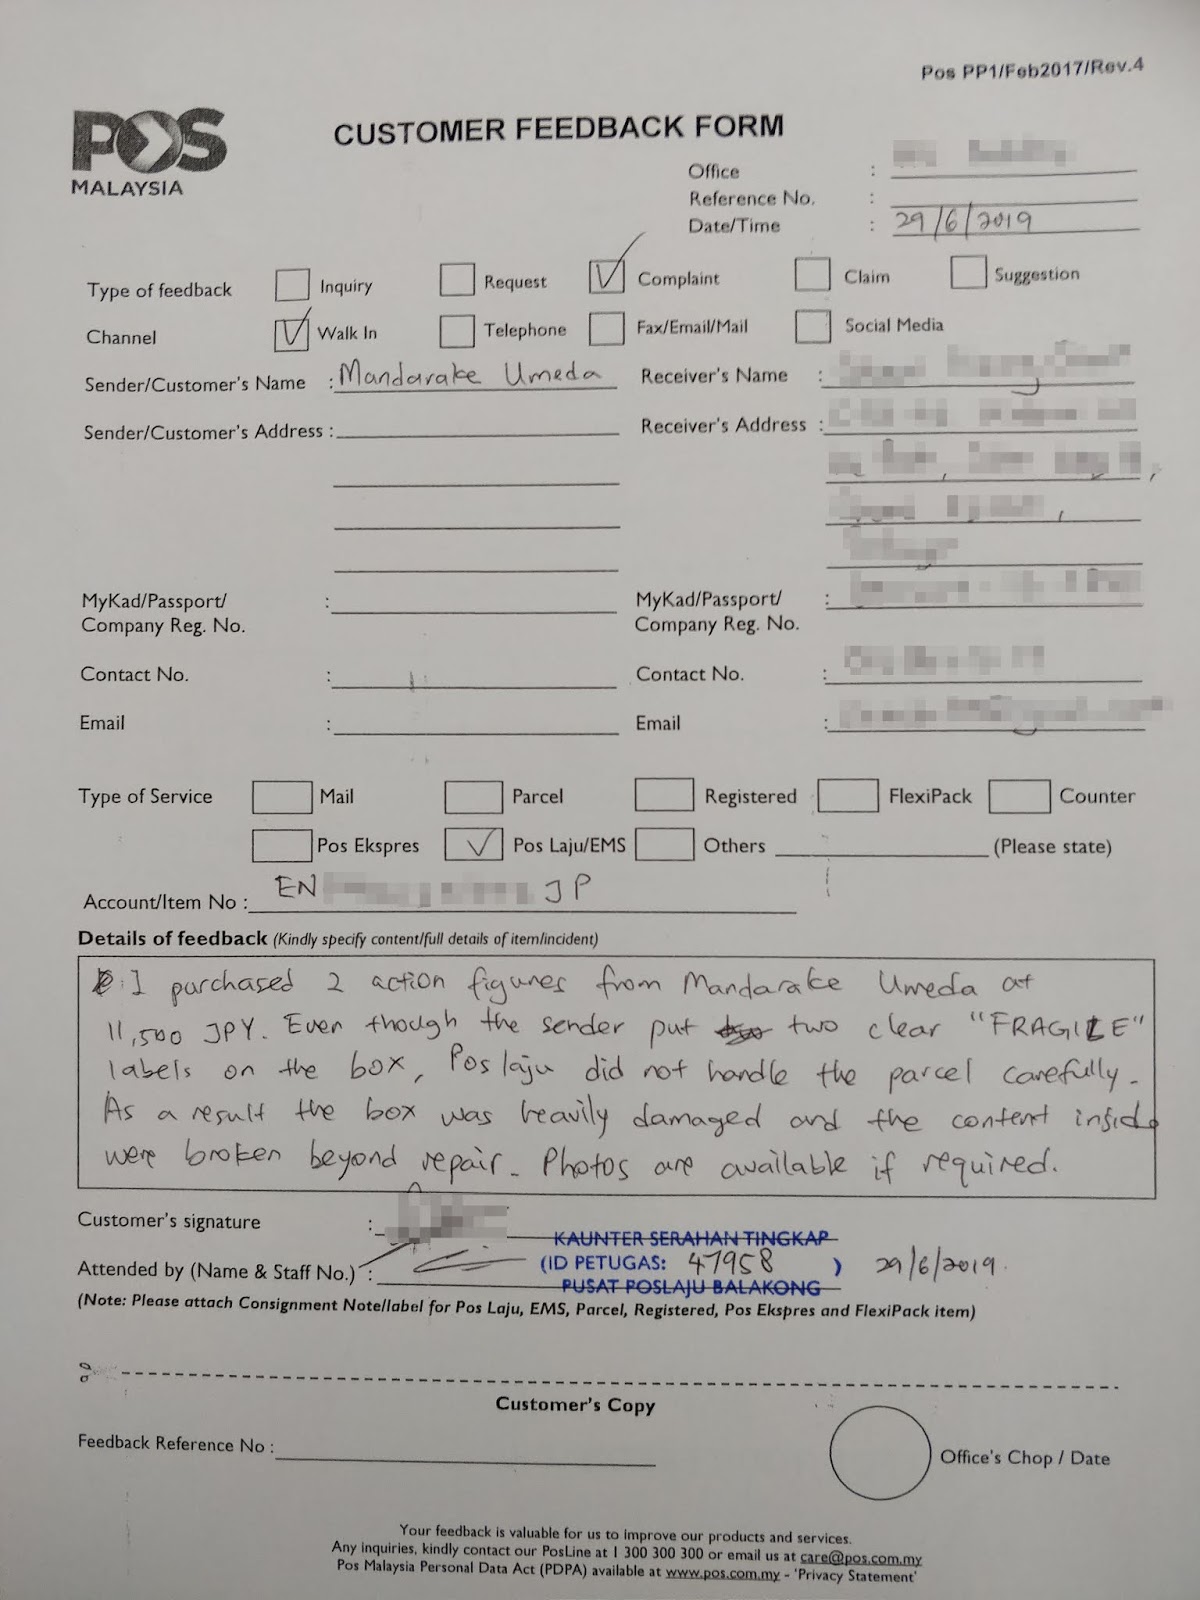 Pos PP1/Feb2017/Rev.4
POS
MALAYSIA
CUSTOMER FEEDBACK FORM
Office :
Reference No. :
Date/Time : 29/6/2019
Type of feedback Inquiry Request Complaint Claim Suggestion
Channel Walk In Telephone Fax/Email/Mail Social Media
Sender/Customer's Name : Mandarake Umeda Receiver's Name :
Sender/Customer's Address : Receiver's Address :
MyKad/Passport/ : MyKad/Passport/ :
Company Reg. No. Company Reg. No.
Contact No. : Contact No. :
Email : Email :
Type of Service Mail Parcel Registered FlexiPack Counter
Pos Ekspres Pos Laju/EMS Others (Please state)
Account/Item No : EN JP
Details of feedback (Kindly specify content/full details of item/incident)
I purchased 2 action figures from Mandarake Umeda at
11,500 JPY. Even though the sender put two clear "FRAGILE"
labels on the box, Pos laju did not handle the parcel carefully.
As a result the box was heavily damaged and the content inside
were broken beyond repair. Photos are available if required.
Customer's signature :
KAUNTER SERAHAN TINGKAP
Attended by (Name & Staff No.) : (ID PETUGAS: 47958 ) 29/6/2019.
PUSAT POSLAJU BALAKONG
(Note: Please attach Consignment Note/label for Pos Laju, EMS, Parcel, Registered, Pos Ekspres and FlexiPack item)
Customer's Copy
Feedback Reference No :
Office's Chop / Date
Your feedback is valuable for us to improve our products and services.
Any inquiries, kindly contact our PosLine at 1 300 300 300 or email us at care@pos.com.my
Pos Malaysia Personal Data Act (PDPA) available at www.pos.com.my - 'Privacy Statement'